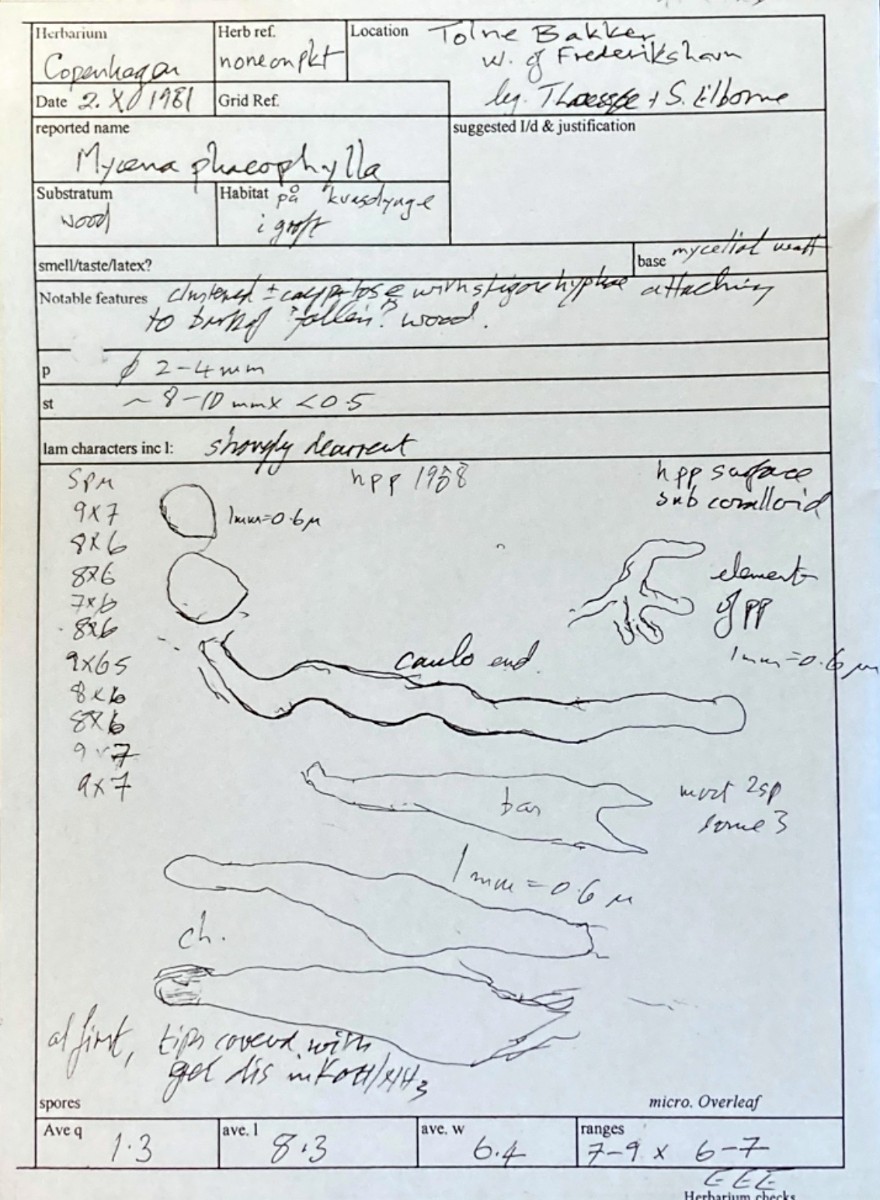 Herbarium
Copenhagen
Herb ref.
none on pkt
Location Tolne Bakker
w. of Frederikshavn
leg. Thoessøe + S. Elborne
Date 2. X 1981
Grid Ref.
reported name
Mycena phaeophylla
suggested I/d & justification
Substratum
wood
Habitat på
i grøft
smell/taste/latex?
base mycelial
Notable features clustered ± with hyphae attaching
to bark of "fallen?" wood.
p ϕ 2-4 mm
st ~ 8-10 mm x <0.5
lam characters inc l: strongly decurrent
Spm
9x7
8x6
8x6
7x6
8x6
9x6.5
8x6
8x6
9x7
9x7
1mm=0.6µ
hpp
hpp surface
sub coralloid
elements
of pp
1mm=0.6 µm
caulo end.
bas
most 2sp
some 3
1mm=0.6 µ
ch.
at first, tips covered with
gel dis in KOH/NH3
spores
micro. Overleaf
Ave q
1.3
ave. l
8.3
ave. w
6.4
ranges
7-9 x 6-7
EEE
Herbarium checks